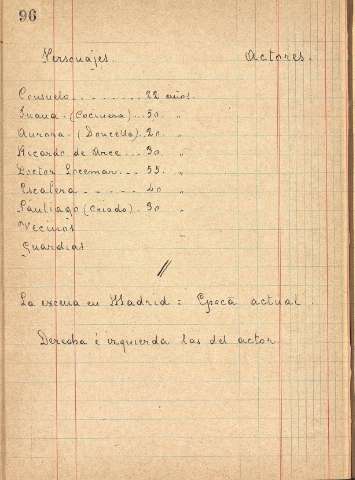 96
Personajes. Actores.
Consuelo........ 22 años.
Juana. (Cocinera)... 50. "
Aurora. (Doncella).. 20. "
Ricardo de Arce... 30. "
Doctor Locemar... 55. "
Escalera...... 40 "
Santiago (Criado). 30 "
Vecinos
Guardias
La escena en Madrid = Epoca actual.
Derecha é izquierda las del actor